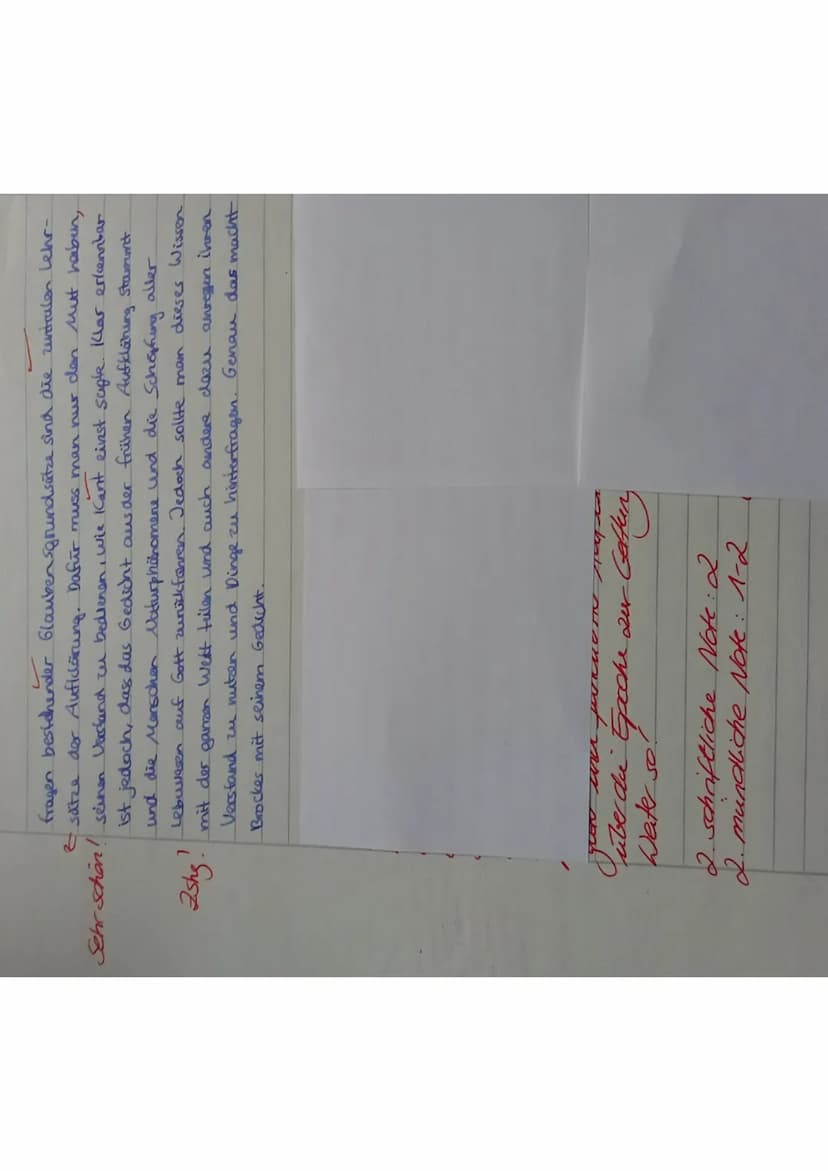 fragen bestehender Glaubensgrundsätze sind die zentralen Lehr-
sätze der Aufklärung. Dafür muss man nur den Mut haben,
Sehr schön!
seinen Verstand zu bedienen, wie Kant einst sagte. Klar erkennbar
ist jedoch, das das Gedicht aus der frühen Aufklärung stammt
und die Menschen Naturphänomene und die Schöpfung aller
Lebewesen auf Gott zurückführen. Jedoch sollte man dieses Wissen
Zshg!
mit der ganzen Welt teilen und auch andere dazu anregen ihren
Verstand zu nutzen und Dinge zu hinterfragen. Genau das macht
Brockes mit seinem Gedicht.
über die Epoche zur Geltung
Weiter so!
2. schriftliche Note: 2
2. mündliche Note: 1-2